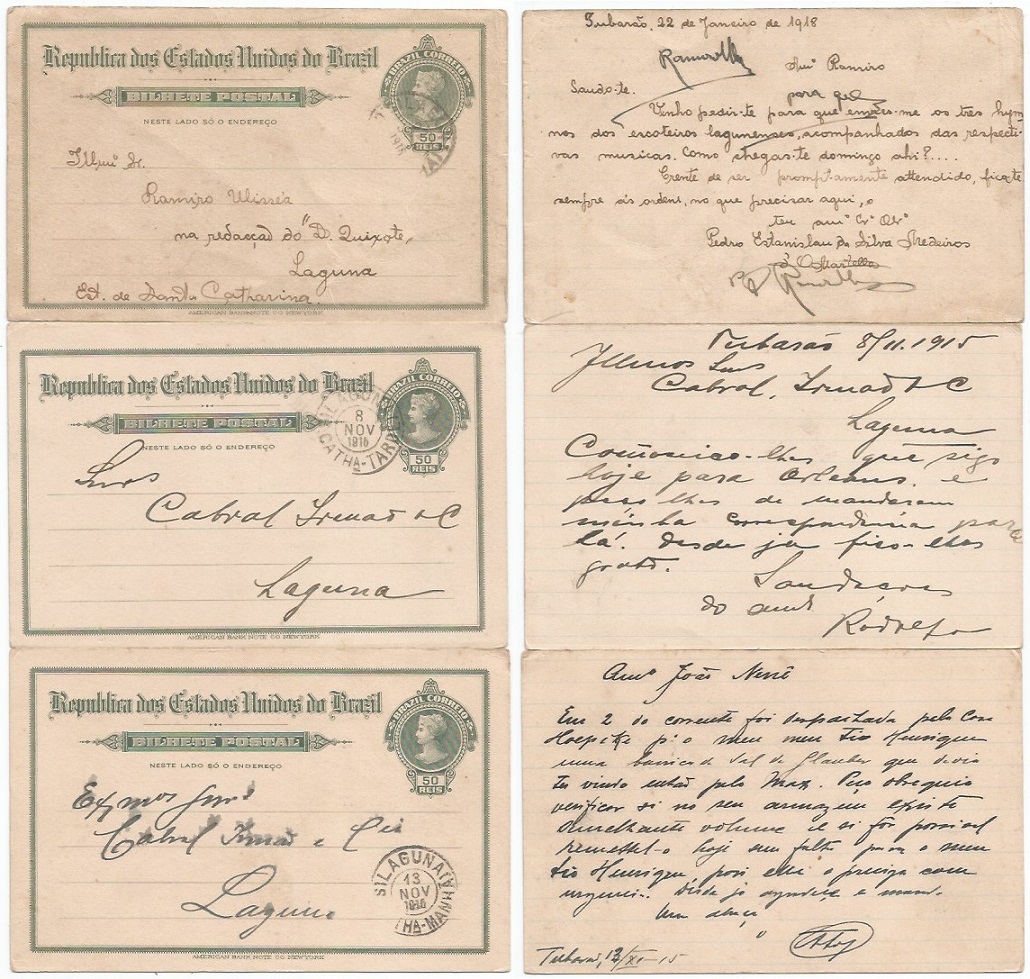 Republica dos Estados Unidos do Brazil
BILHETE POSTAL
NESTE LADO SÓ O ENDEREÇO
BRAZIL CORREIO
50
REIS
Illmº Sr.
Ramiro Ulisséa
na redacção do "D. Quixote,
Laguna
Est. de Santa Catharina
AMERICAN BANK NOTE CO NEW YORK
Tubarão, 22 de Janeiro de 1918
Amº Ramiro
Saudo-te.
para que
Venho pedir-te para que envies-me os tres hym
nos dos escoteiros lagunenses, acompanhados das respecti
vas musicas. Como chegas-te domingo ahi?....
Crente de ser promptamente attendido, fica-te
sempre ás ordens, no que precisar aqui, o
teu amº Crº Obrº
Pedro Estanislau da Silva Medeiros
Republica dos Estados Unidos do Brazil
BILHETE POSTAL
NESTE LADO SÓ O ENDEREÇO
BRAZIL CORREIO
50
REIS
LAGUNA
8
NOV
1915
CATHA
Snrs
Cabral Irmão & C
Laguna
AMERICAN BANK NOTE CO NEW YORK
Tubarão 8/11.1915
Illmos Snrs
Cabral, Irmão & C
Laguna
Comonico-lhes que sigo
hoje para Orleans. e
peço lhes de mandarem
minha correspondencia para
lá. Desde ja fico-lhes
grato.
do amº
Rodolfo
Republica dos Estados Unidos do Brazil
BILHETE POSTAL
NESTE LADO SÓ O ENDEREÇO
BRAZIL CORREIO
50
REIS
Exmos Snrs
Cabral Irmão e Cia
Laguna
LAGUNA (MANHÃ)
13
NOV
1915
AMERICAN BANK NOTE CO NEW YORK
Amº João
Em 2 do corrente foi despachada pela Casa
Hoepcke p. o meu tio Henrique
uma barrica de Sal de Glauber que devia
ter vindo então pelo Max. Por obsequio
verificar si no seu armazem existe
semelhante volume e si fôr possivel
remettel-o hoje sem falta para o meu
tio Henrique, pois elle o precisa com
urgencia. Desde já agradeço e mando
um abraço
Tubarão, 12/XI-15